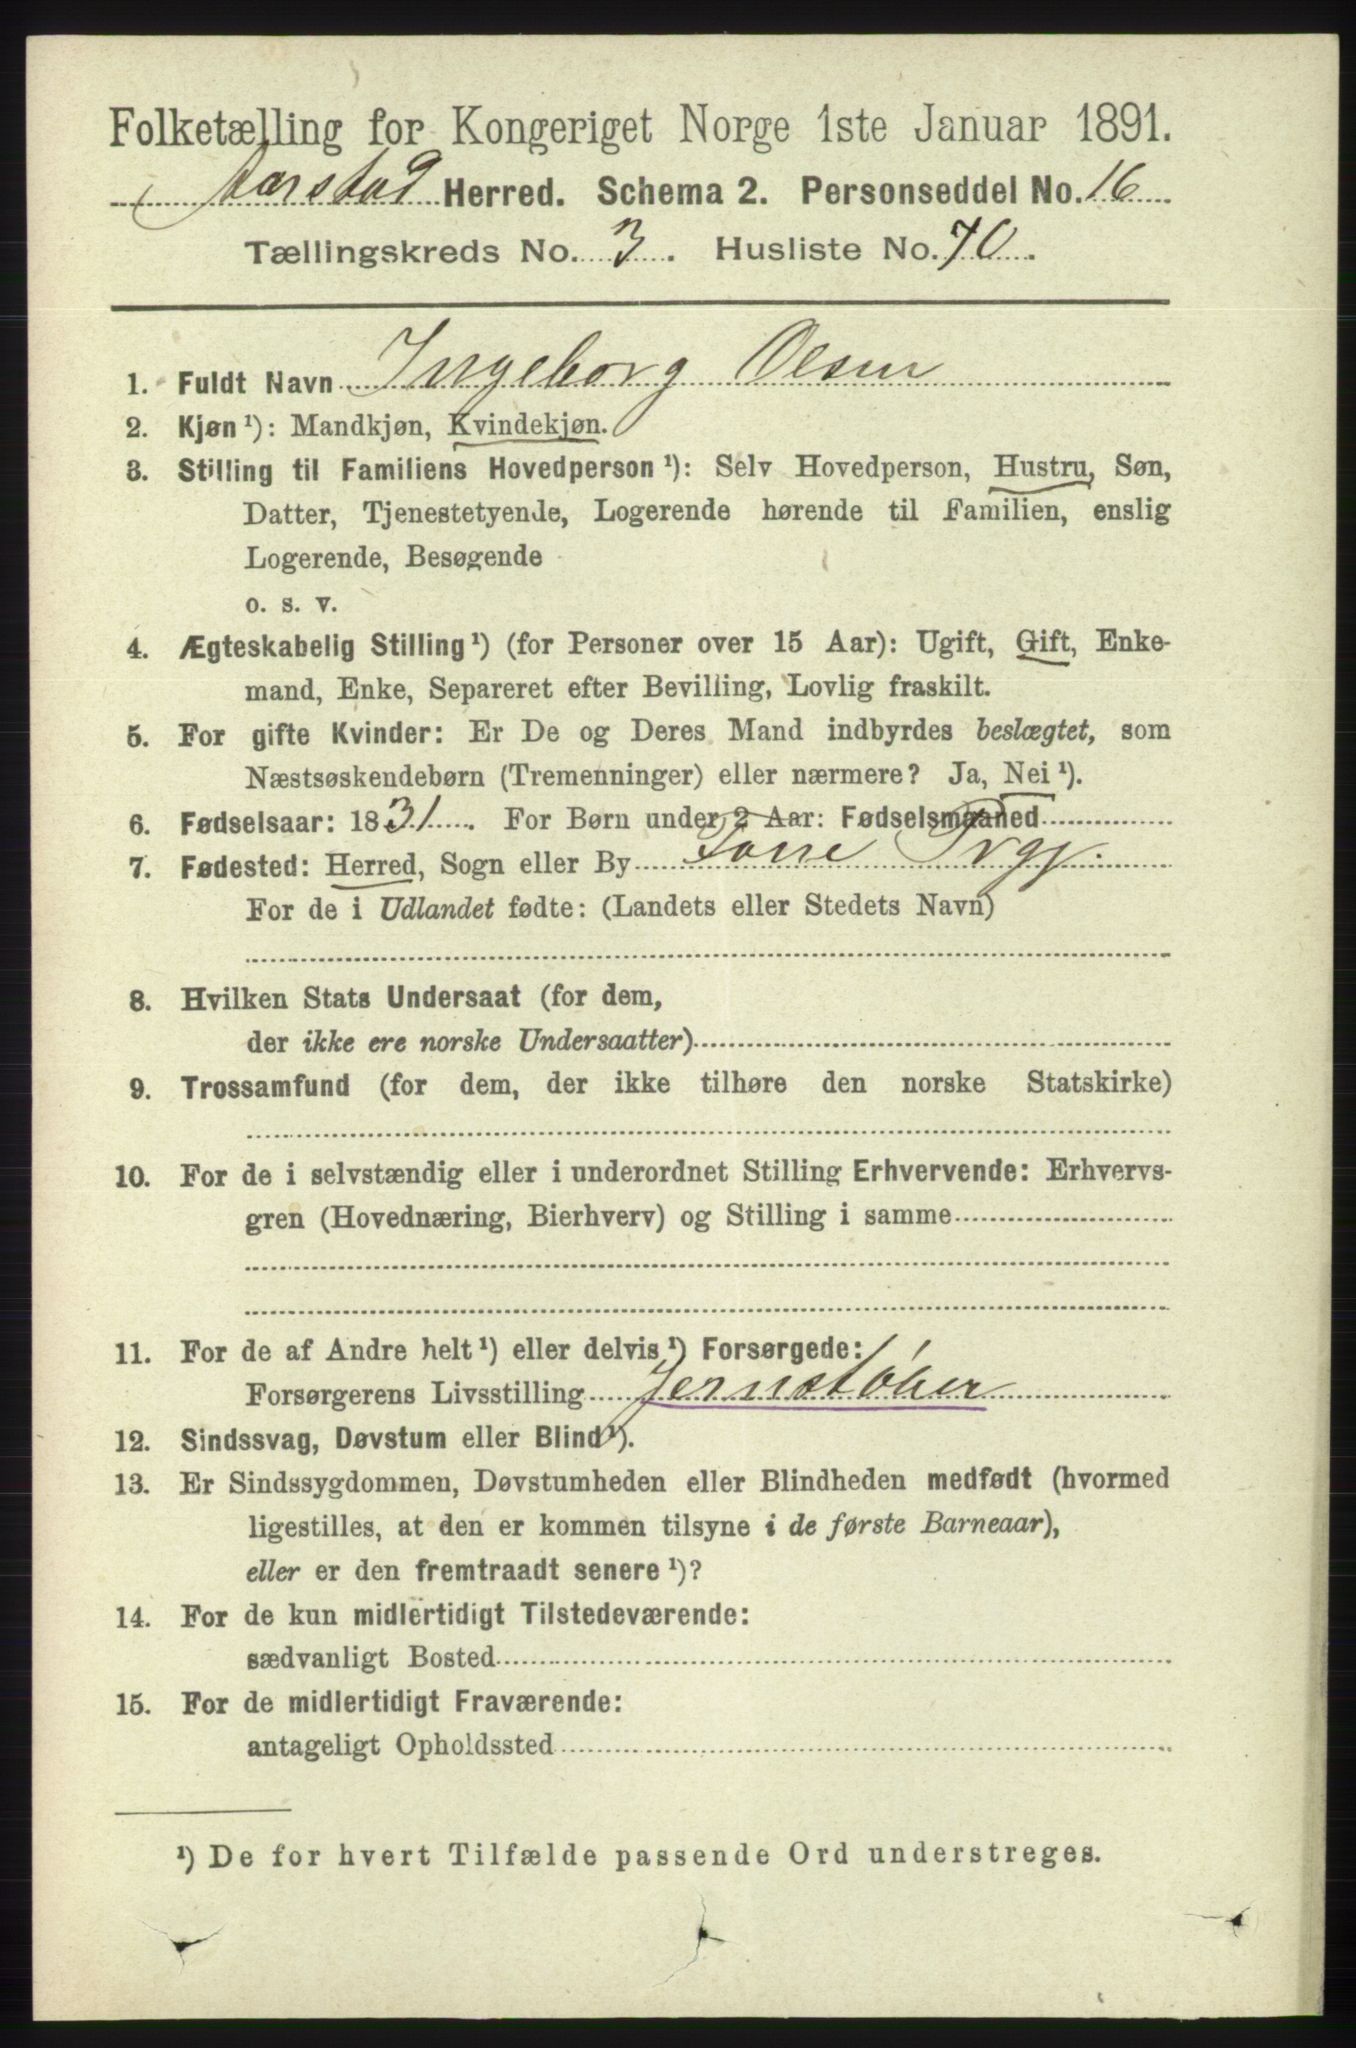 Folketælling for Kongeriget Norge 1ste Januar 1891.
Aarstad Herred. Schema 2. Personseddel No. 16
Tællingskreds No. 3. Husliste No. 70.
1. Fuldt Navn Ingeborg Olsen
2. Kjøn¹): Mandkjøn, Kvindekjøn.
3. Stilling til Familiens Hovedperson¹): Selv Hovedperson, Hustru, Søn,
Datter, Tjenestetyende, Logerende hørende til Familien, enslig
Logerende, Besøgende
o. s. v.
4. Ægteskabelig Stilling¹) (for Personer over 15 Aar): Ugift, Gift, Enke-
mand, Enke, Separeret efter Bevilling, Lovlig fraskilt.
5. For gifte Kvinder: Er De og Deres Mand indbyrdes beslægtet, som
Næstsøskendebørn (Tremenninger) eller nærmere? Ja, Nei¹).
6. Fødselsaar: 1831. For Børn under 2 Aar: Fødselsmaaned
7. Fødested: Herred, Sogn eller By Fosse Prgj.
For de i Udlandet fødte: (Landets eller Stedets Navn)
8. Hvilken Stats Undersaat (for dem,
der ikke ere norske Undersaatter)
9. Trossamfund (for dem, der ikke tilhøre den norske Statskirke)
10. For de i selvstændig eller i underordnet Stilling Erhvervende: Erhvervs-
gren (Hovednæring, Bierhverv) og Stilling i samme
11. For de af Andre helt¹) eller delvis¹) Forsørgede:
Forsørgerens Livsstilling Jernstøber
12. Sindssvag, Døvstum eller Blind¹).
13. Er Sindssygdommen, Døvstumheden eller Blindheden medfødt (hvormed
ligestilles, at den er kommen tilsyne i de første Barneaar),
eller er den fremtraadt senere¹)?
14. For de kun midlertidigt Tilstedeværende:
sædvanligt Bosted
15. For de midlertidigt Fraværende:
antageligt Opholdssted
¹) De for hvert Tilfælde passende Ord understreges.